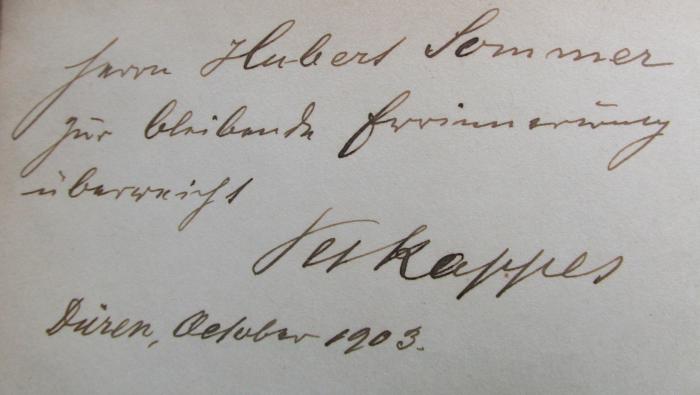 Herrn Hubert Sommer
zur bleibende Errinnerung
überreicht
Düren, October 1903.